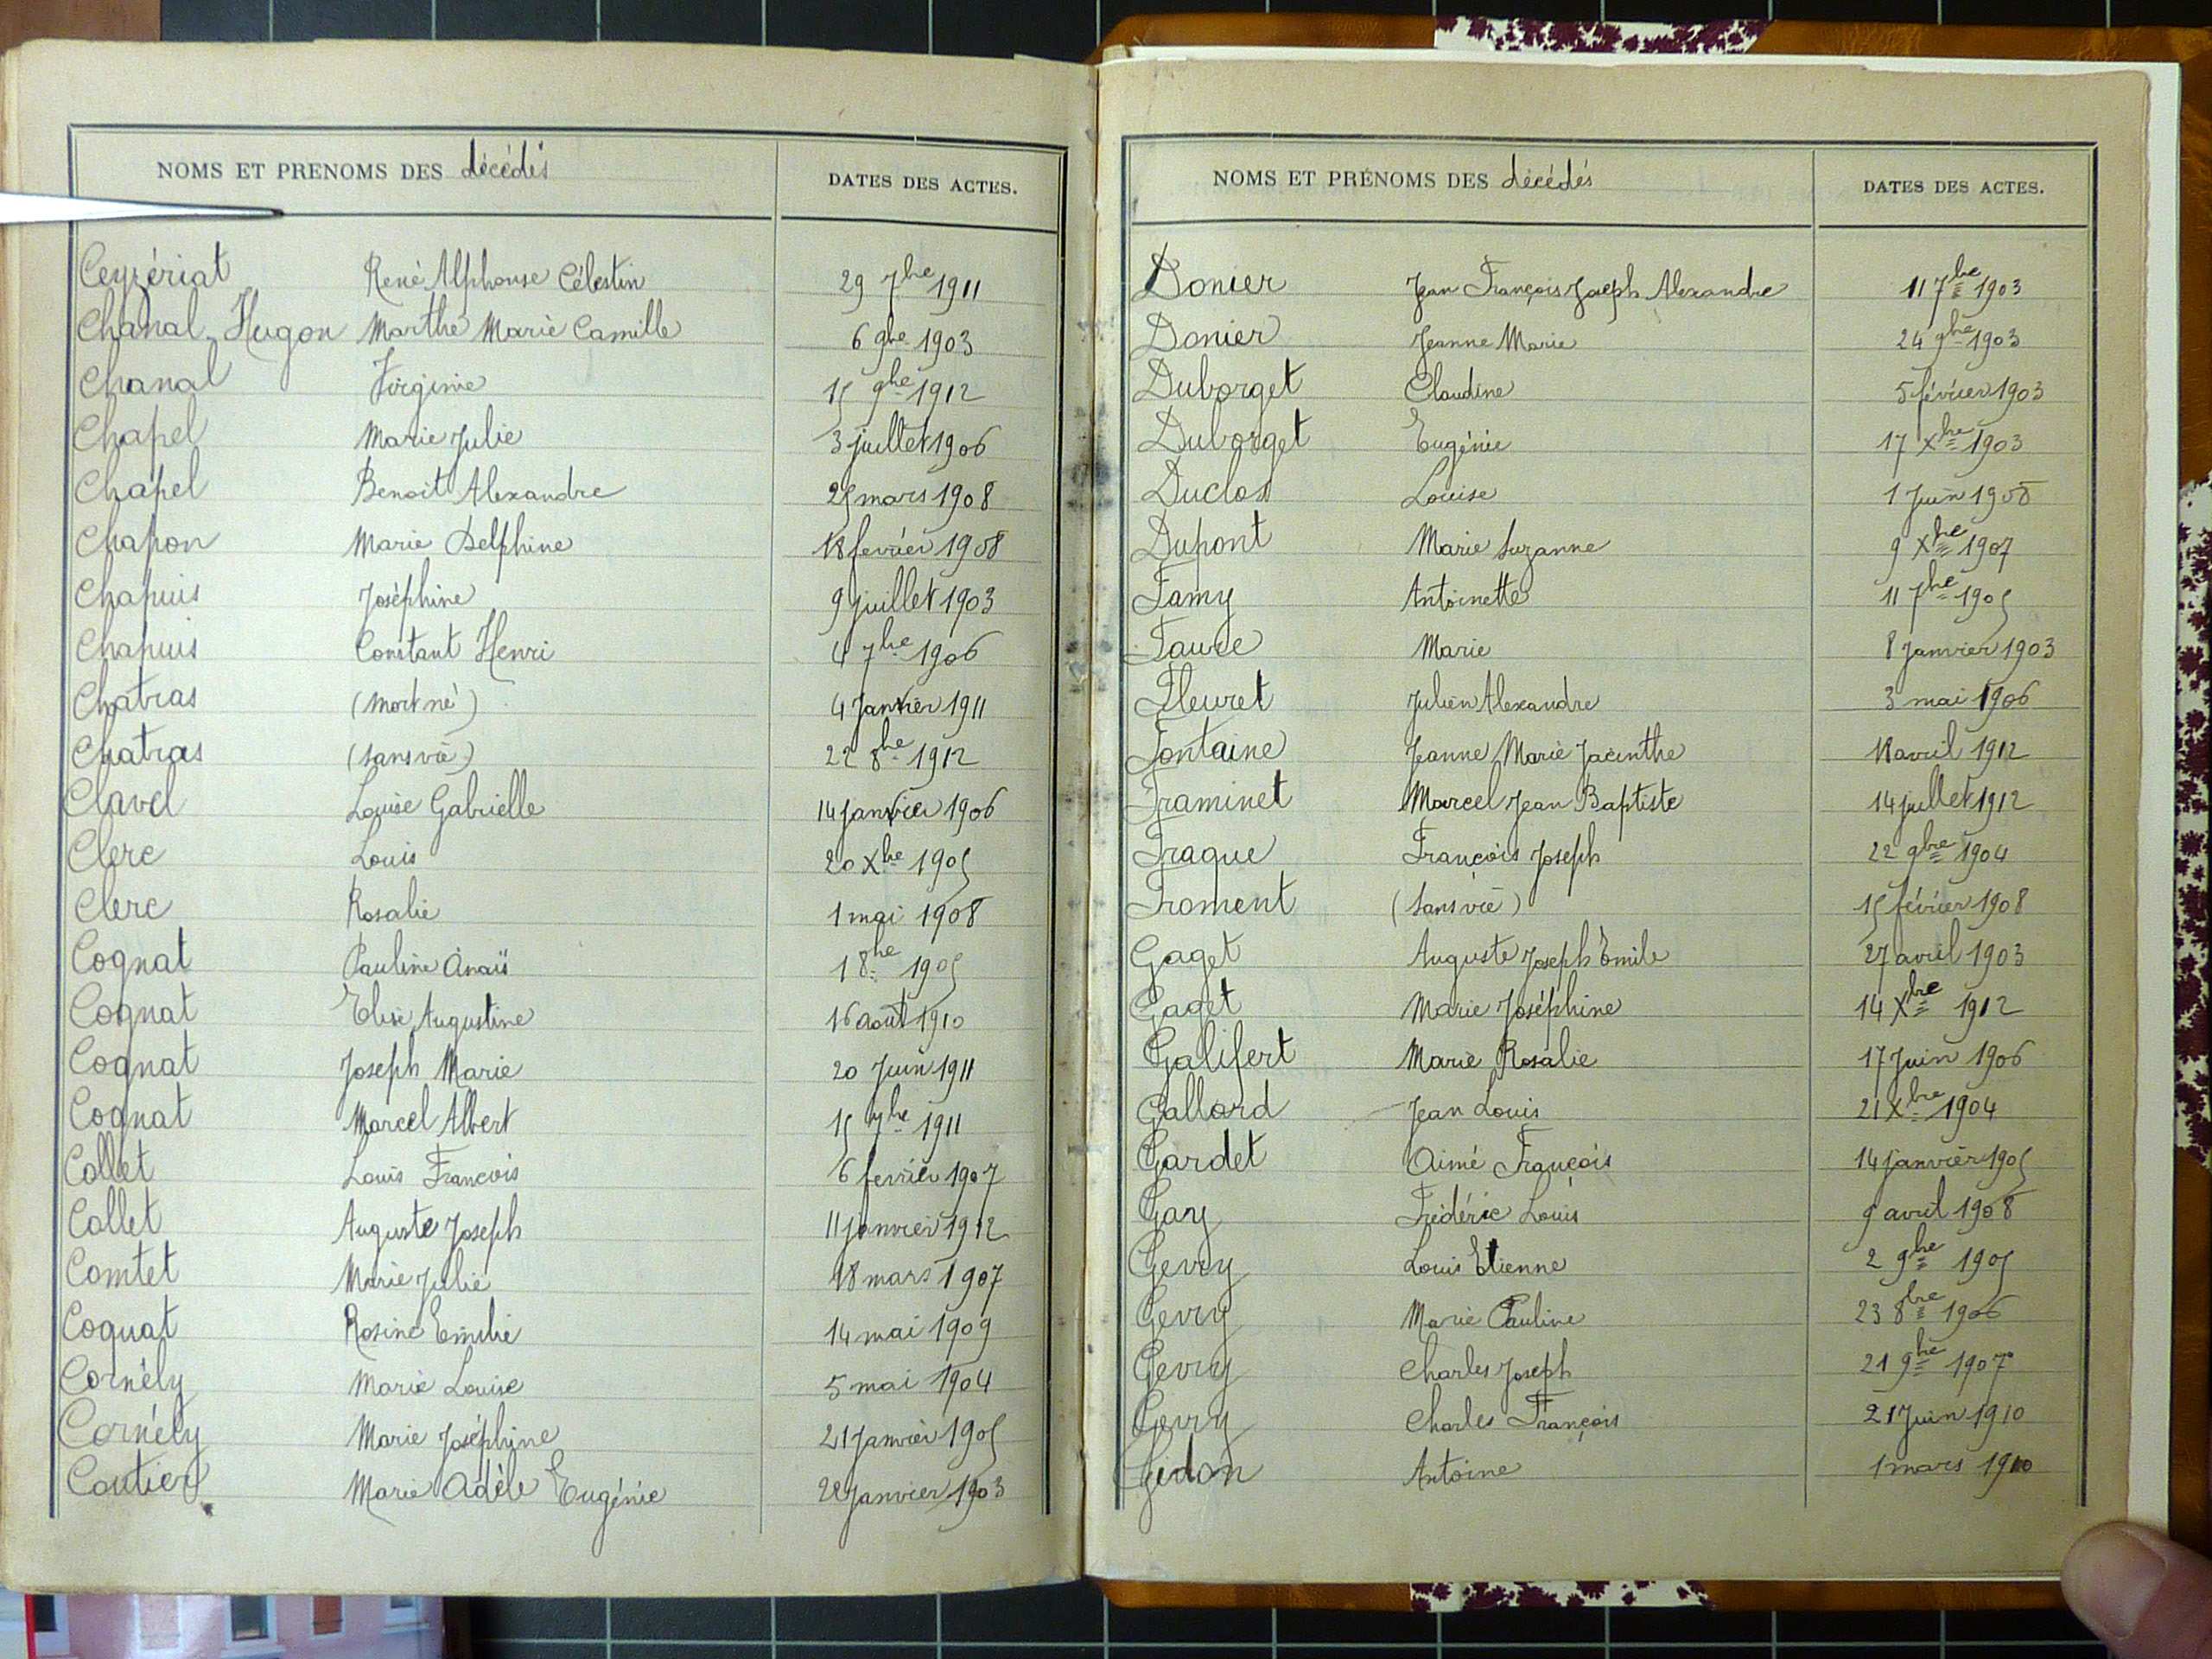 NOMS ET PRENOMS DES décédés DATES DES ACTES.
Ceyzériat René Alphonse Célestin 29 7bre 1911
Chanal-Hugon Marthe Marie Camille 6 9bre 1903
Chanal Virginie 15 9bre 1912
Chapel Marie Julie 3 juillet 1906
Chapel Benoit Alexandre 25 mars 1908
Chapon Marie Delphine 18 fevrier 1908
Chapuis Joséphine 9 juillet 1903
Chapuis Constant Henri 4 7bre 1906
Chatras (mort né) 4 Janvier 1911
Chatras (sans vie) 22 8bre 1912
Clavel Louise Gabrielle 14 janvier 1906
Clerc Louis 20 Xbre 1905
Clerc Rosalie 1 mai 1908
Cognat Pauline Anaïs 1 8bre 1905
Cognat Elise Augustine 16 août 1910
Cognat Joseph Marie 20 Juin 1911
Cognat Marcel Albert 15 7bre 1911
Collet Louis François 6 fevrier 1907
Collet Auguste Joseph 11 janvier 1912
Comtet Marie Julie 18 mars 1907
Coquat Rosine Emilie 14 mai 1909
Cornély Marie Louise 5 mai 1904
Cornély Marie Joséphine 21 Janvier 1905
Coutier Marie Adèle Eugénie 28 janvier 1903
NOMS ET PRÉNOMS DES décédés DATES DES ACTES.
Donier Jean François Joseph Alexandre 11 7bre 1903
Donier Jeanne Marie 24 9bre 1903
Duborget Claudine 5 février 1903
Duborget Eugénie 17 Xbre 1903
Duclos Louise 1 Juin 1908
Dupont Marie Suzanne 9 Xbre 1907
Famy Antoinette 11 7bre 1905
Favre Marie 8 Janvier 1903
Fleuret Julien Alexandre 3 mai 1906
Fontaine Jeanne Marie Jacinthe 18 avril 1912
Framinet Marcel Jean Baptiste 14 juillet 1912
Fraque François Joseph 22 9bre 1904
Froment (sans vie) 15 février 1908
Gaget Auguste Joseph Emile 27 avril 1903
Gaget Marie Joséphine 14 Xbre 1912
Galifert Marie Rosalie 17 Juin 1906
Gallord Jean Louis 21 Xbre 1904
Gardet Aimé François 14 janvier 1905
Gay Frédéric Louis 9 avril 1908
Gevry Louis Etienne 2 9bre 1905
Gevry Marie Pauline 23 8bre 1906
Gevry Charles Joseph 21 9bre 1907
Gevry Charles François 21 Juin 1910
Gidon Antoine 1 mars 1910